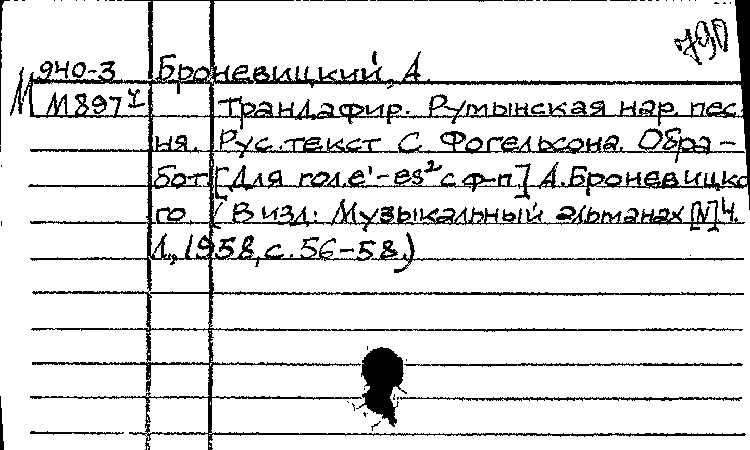 790
940-3 Броневицкий, А.
М М897ч Трандафир. Румынская нар. пес
ня. Рус. текст С. Фогельсона. Обра-
бот. [Для гол. e'-es² с ф-п] А. Броневицко
го (В изд: Музыкальный альманах [N] 4.
Л., 1958, с. 56-58.)